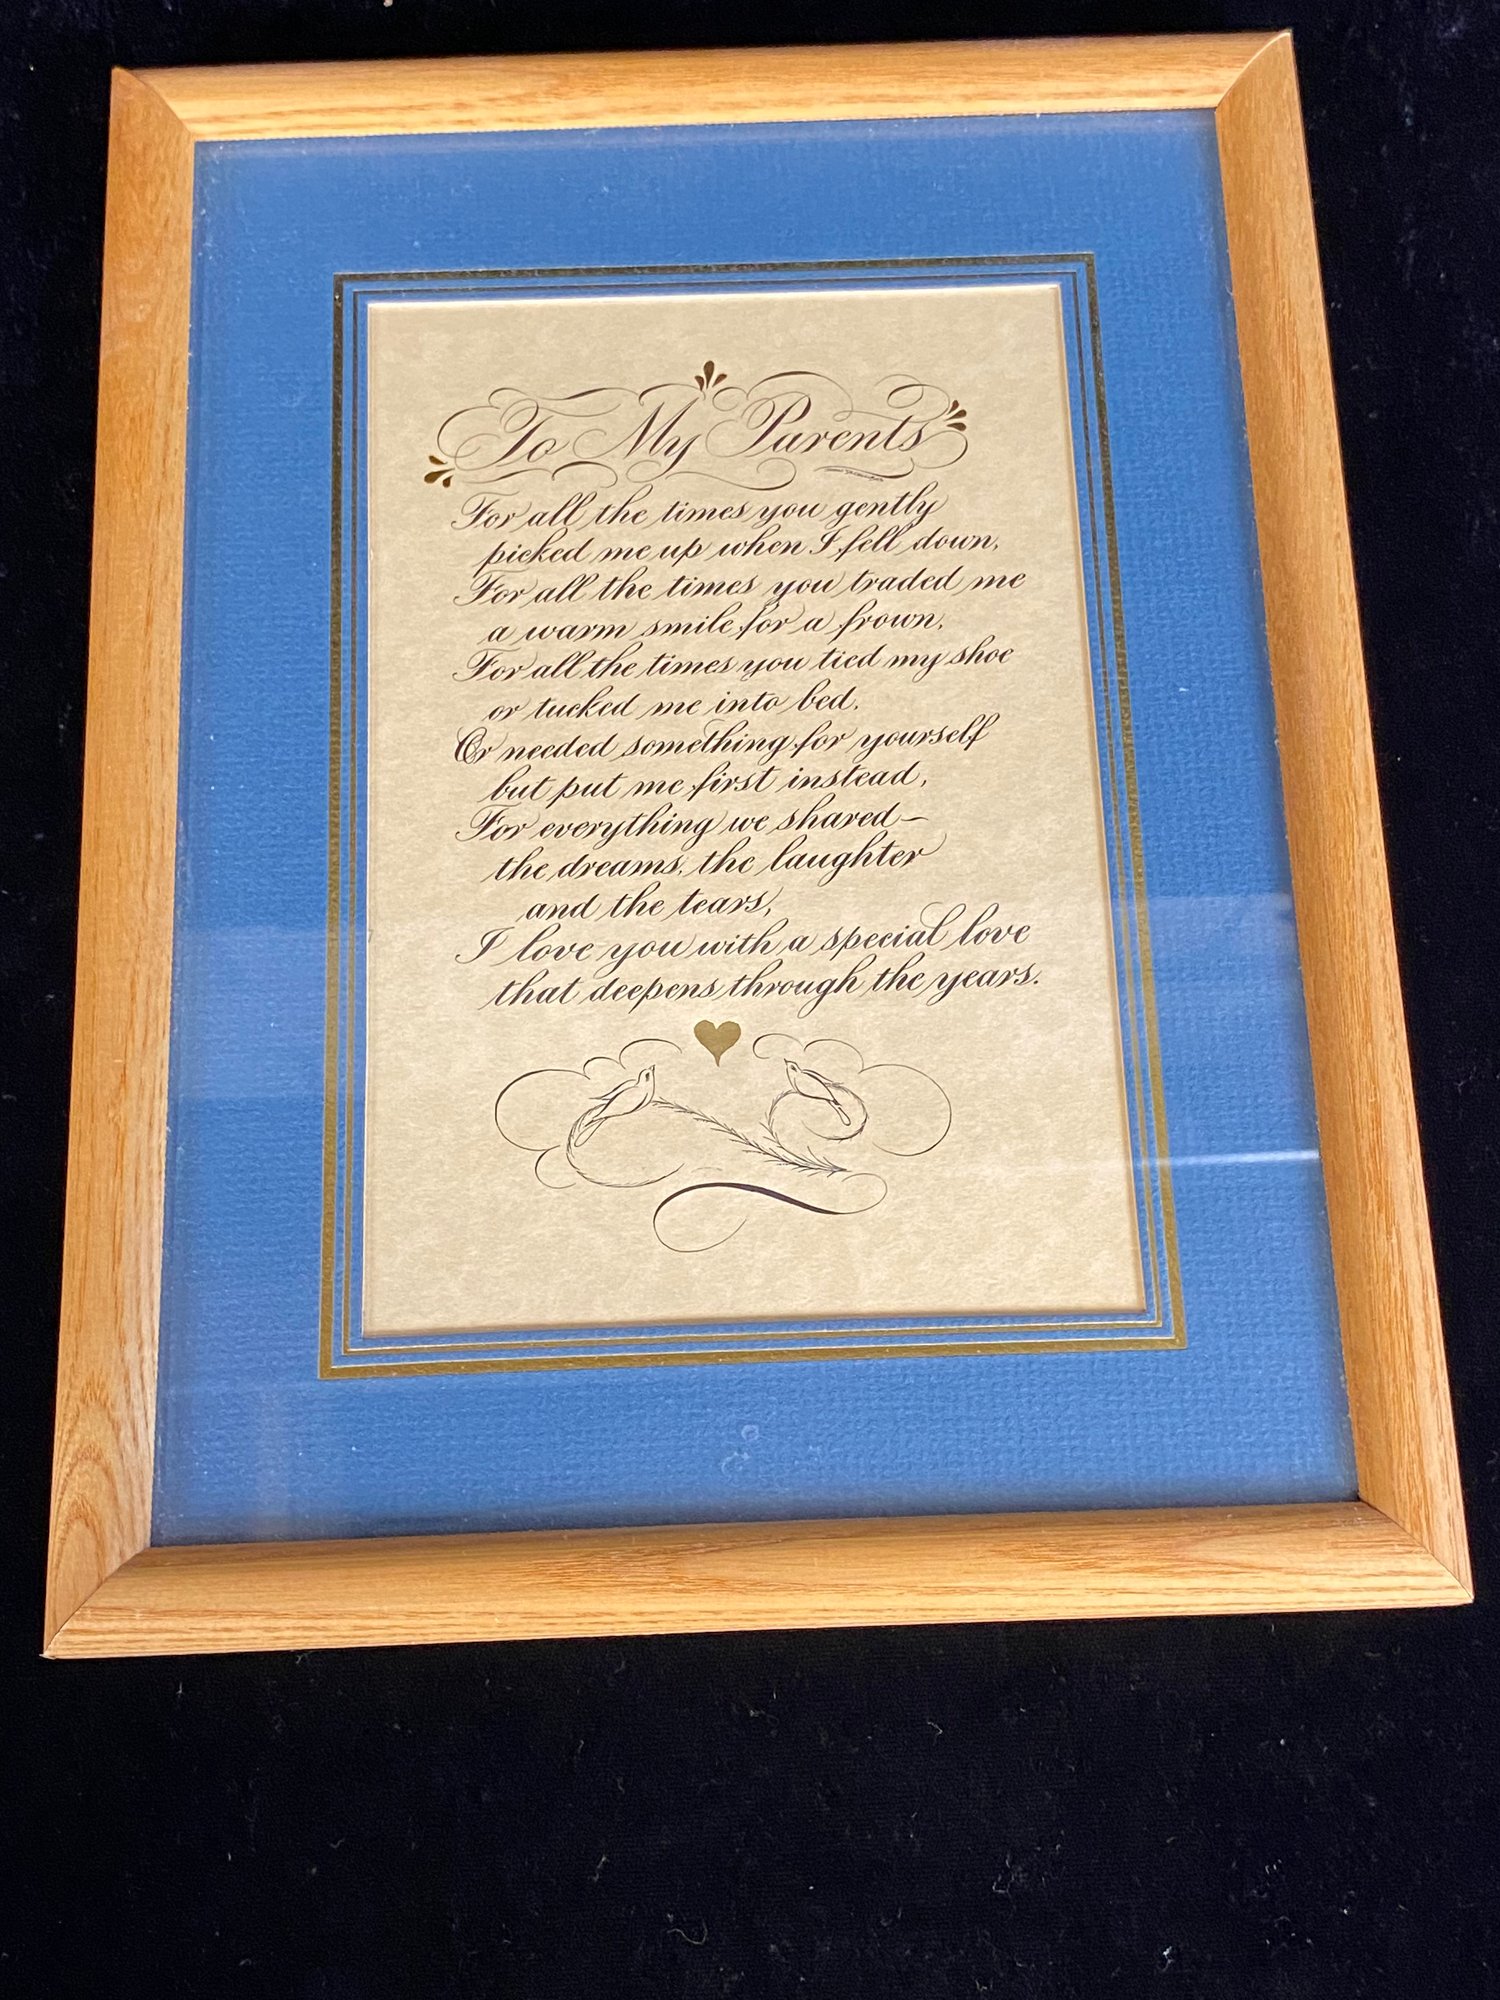 To My Parents
For all the times you gently
picked me up when I fell down,
For all the times you traded me
a warm smile for a frown,
For all the times you tied my shoe
or tucked me into bed,
Or needed something for yourself
but put me first instead,
For everything we shared—
the dreams, the laughter
and the tears,
I love you with a special love
that deepens through the years.